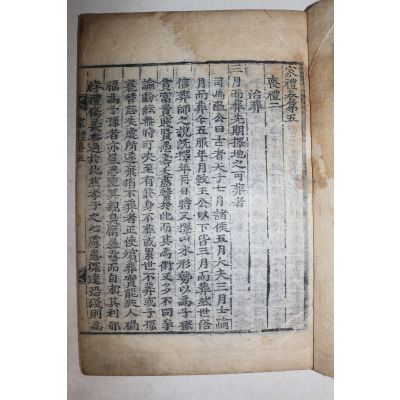 家禮卷第五
喪禮二
治葬
三月而葬先期擇地之可葬者
司馬溫公曰古者天子七月諸侯五月大夫三月士踰
月而葬今五服年月敕王公以下皆三月而葬然世俗
信葬師之說旣擇年月日時又擇山水形勢以爲子孫
貧富貴賤賢愚壽夭盡繫於此而其爲術又多不同爭
論紛紜無時可决至有終身不葬或累世不葬或子孫
衰替忘失處所遂棄捐不葬者正使殯葬實能致人
禍福爲子孫者亦豈忍使其親臭腐暴露而自求其利耶
悖禮傷義無過於此然孝子之心慮患深遠恐淺則爲
家禮卷五